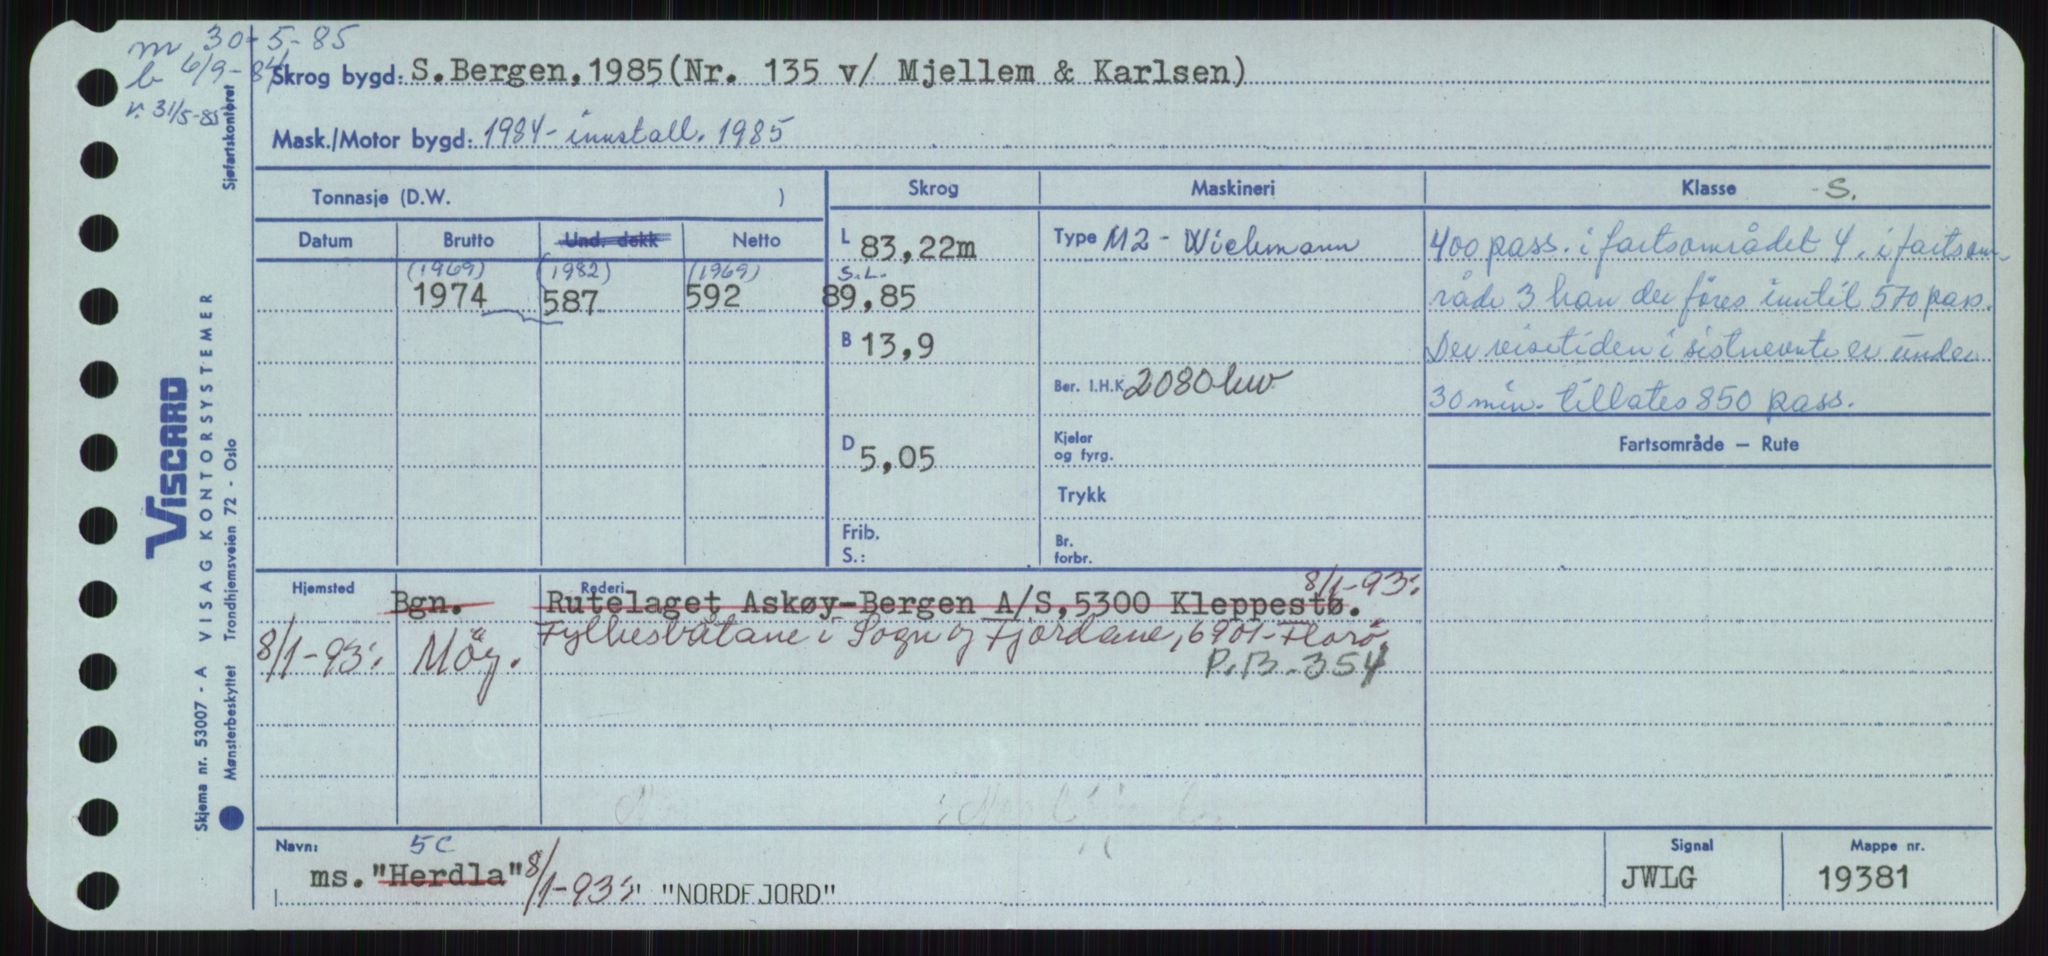 m 30-5-85
b 6/9-84
v. 31/5-85
Skrog bygd: S.Bergen, 1985(Nr. 135 v/ Mjellem & Karlsen)
Mask./Motor bygd: 1984- innstall. 1985
Sjøfartskontoret
Tonnasje (D.W. )
Datum Brutto Und. dekk Netto
(1969) (1982) (1969)
1974 587 592
Skrog
L 83,22m
S.L.
89,85
B 13,9
D 5,05
Frib.
S.:
Maskineri
Type M2 - Wichmann
Ber. I.H.K. 2080 kw
Kjeler
og fyrg.
Trykk
Br.
forbr.
Klasse S.
400 pass. i fartsområdet 4, i fartsom-
råde 3 kan der föres inntil 570 pass.
Der reisetiden i sistnevnte er under
30 min. tillates 850 pass.
Fartsområde — Rute
Hjemsted Rederi
8/1-93:
Bgn. Rutelaget Askøy-Bergen A/S, 5300 Kleppestø.
8/1-93: Måg. Fylkesbåtane i Sogn og Fjordane, 6901-Florö,
P.B.-354
Navn: 5c
ms. "Herdla" 8/1-93: " "NORDFJORD"
Signal
JWLG
Mappe nr.
19381
VISCARD
Skjema nr. 53007 - A VISAG KONTORSYSTEMER
Mønsterbeskyttet Trondhjemsveien 72 - Oslo